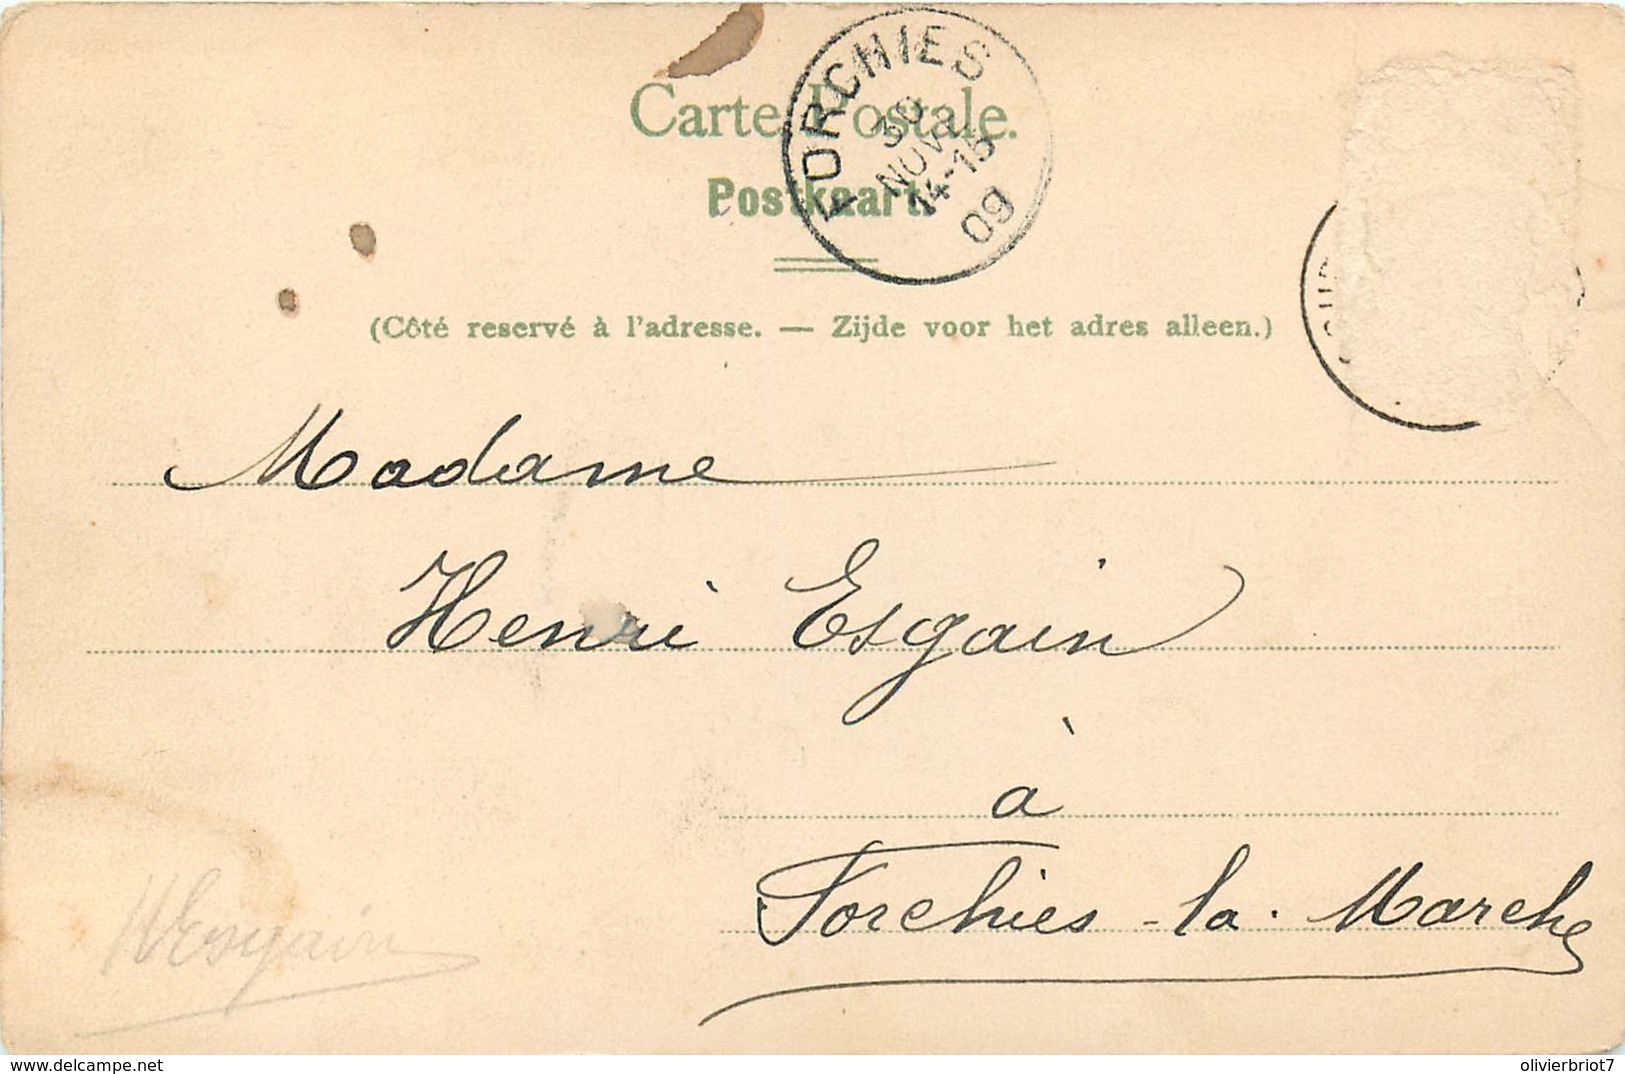 FORCHIES
30
NOV
14-15
09
Carte Postale.
Postkaart.
(Côté reservé à l'adresse. — Zijde voor het adres alleen.)
Madame
Henri Esgain
à
Forchies-la-Marche
HEsgain
https://www.delcampe.net
olivierbriot7